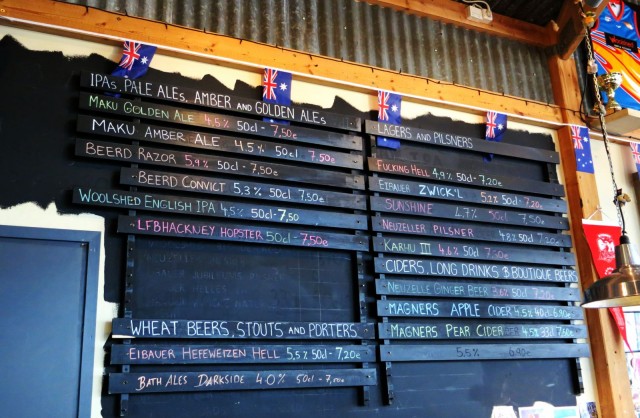 IPAs, PALE ALEs, AMBER AND GOLDEN ALEs
MAKU GOLDEN ALE 4,5% 50cl - 7,50€
MAKU AMBER ALE 4,5% 50cl 7,50€
BEERD RAZOR 5,9% 50cl - 7,50€
BEERD CONVICT 5,3% 50cl 7,50€
WOOLSHED ENGLISH IPA 4,5% 50cl - 7,50
LFBHACKNEY HOPSTER 50cl - 7,50€
WHEAT BEERS, STOUTS AND PORTERS
EIBAUER HEFEWEIZEN HELL 5,5% 50cl - 7,20€
BATH ALES DARKSIDE 4,0% 50cl - 7,00€
LAGERS AND PILSNERS
FUCKING HELL 4,9% 50cl - 7,20€
EIBAUER ZWICK'L 5,2% 50cl 7,20€
SUNSHINE 4,7% 50cl 7,50€
NEUZELLER PILSNER 4,8% 50cl 7,20€
KARHU III 4,6% 50cl 7,50€
CIDERS, LONG DRINKS & BOUTIQUE BEERS
NEUZELLE GINGER BEER 50cl 7,50€
MAGNERS APPLE CIDER 4,5% 40cl 6,90€
MAGNERS PEAR CIDER 4,5% 33cl 7,50€
5,5% 6,90€